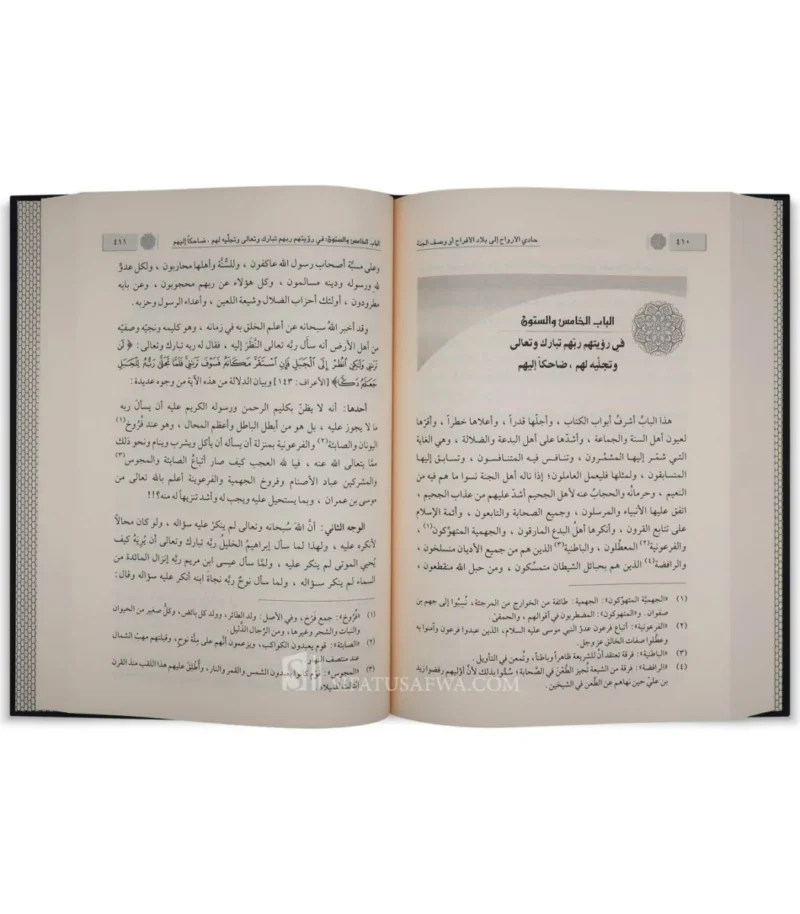 ٤١٠
حادي الأرواح إلى بلاد الأفراح أو وصف الجنة
الباب الخامس والستون
في رؤيتهم ربّهم تبارك وتعالى
وتجلّيه لهم ، ضاحكاً إليهم
هذا البابُ أشرفُ أبواب الكتاب ، وأجلّها قدراً ، وأعلاها خطراً ، وأقرّها
لعيون أهل السنة والجماعة ، وأشدّها على أهل البدعة والضلالة ، وهي الغاية
التي شمّر إليها المشمّرون ، وتنافس فيه المتنافسون ، وتسابق إليها
المتسابقون ، ولمثلها فليعمل العاملون؛ إذا ناله أهل الجنة نسوا ما هم فيه من
النعيم ، وحرمانُه والحجابُ عنه لأهل الجحيم أشدّ عليهم من عذاب الجحيم ،
اتفق عليها الأنبياء والمرسلون ، وجميع الصحابة والتابعون ، وأئمة الإسلام
على تتابع القرون ، وأنكرها أهلُ البدع المارقون ، والجهمية المتهوّكون(١) ،
والفرعونية(٢) المعطّلون ، والباطنية(٣) الذين هم من جميع الأديان منسلخون ،
والرافضة(٤) الذين هم بحبائل الشيطان متمسّكون ، ومن حبل الله منقطعون ،
(١) «الجهميّة المتهوّكون»: الجهمية: طائفة من الخوارج من المرجئة، نُسِبُوا إلى جهم بن
صفوان. و«المتهوّكون»: المضطربون في أقوالهم ، والحمقىٰ.
(٢) «الفرعونية»: أتباع فرعون عدوّ النبي موسى عليه السلام، الذين عبدوا فرعون وآمنوا به
وعطّلوا صفات الخالق عز وجل.
(٣) «الباطنية»: فرقة تعتقد أنّ للشريعة ظاهراً وباطناً، وتُمعن في التأويل.
(٤) «الرافضة»: فرقة من الشيعة تُجيز الطّعْن في الصّحابة؛ سُمُّوا بذلك لأنّ أوّليهم رفضوا زيد
بن عليّ حين نهاهم عن الطّعن في الشيخين.
الباب الخامس والستون: في رؤيتهم ربهم تبارك وتعالى وتجلّيه لهم ، ضاحكاً إليهم
٤١١
وعلى مسبَّة أصحاب رسول الله عاكفون ، وللسُّنَّة وأهلها محاربون ، ولكل عدوٍّ
لله ورسوله ودينه مسالمون ، وكل هؤلاء عن ربهم محجوبون ، وعن بابه
مطرودون ، أولئك أحزاب الضلال وشيعة اللعين ، وأعداء الرسول وحزبه.
وقد أخبر اللهُ سبحانه عن أعلم الخلق به في زمانه ، وهو كليمه ونجيّه وصفيّه
من أهل الأرض أنه سأل ربَّه تعالى النَّظَرَ إليه ، فقال له ربه تبارك وتعالى: ﴿ لَن
تَرَىٰنِى وَلَٰكِنِ ٱنظُرْ إِلَى ٱلْجَبَلِ فَإِنِ ٱسْتَقَرَّ مَكَانَهُۥ فَسَوْفَ تَرَىٰنِى فَلَمَّا تَجَلَّىٰ رَبُّهُۥ لِلْجَبَلِ
جَعَلَهُۥ دَكًّا ﴾ [الأعراف: ١٤٣] وبيان الدلالة من هذه الآية من وجوه عديدة :
أحدها: أنه لا يظنّ بكليم الرحمن ورسوله الكريم عليه أن يسألَ ربه
ما لا يجوز عليه ، بل هو من أبطل الباطل وأعظم المحال ، وهو عند فُرُوخ(١)
اليونان والصابئة(٢) والفرعونية بمنزلة أن يسأله أن يأكل ويشرب وينام ونحو ذلك
ممّا يتعالى الله عنه ، فيا لله العجب كيف صار أتباعُ الصابئة والمجوس(٣)
والمشركين عباد الأصنام وفروخ الجهمية والفرعونية أعلم بالله تعالى من
موسى بن عمران ، وبما يستحيل عليه ويجب له وأشد تنزيهاً له منه؟!!
الوجه الثاني: أنَّ اللهَ سُبحانه وتعالى لم ينكرْ عليه سؤاله ، ولو كان محالاً
لأنكره عليه ، ولهذا لما سأل إبراهيمُ الخليلُ ربَّه تبارك وتعالى أن يُرِيَهُ كيف
يُحيي الموتى لم ينكر عليه ، ولمّا سأل عيسى ابن مريم ربَّه إنزال المائدة من
السماء لم ينكر سؤاله ، ولما سأل نوحٌ ربَّه نجاةَ ابنه أنكر عليه سؤاله وقال:
(١) «فُرُوخ»: جمع فَرْخ، وفي الأصل: ولد الطائر، وولد كل بائض، وكلُّ صغير من الحيوان
والنبات والشجر وغيرها، ومن الرِّجال الذّليل.
(٢) «الصابئة»: قوم يعبدون الكواكب، ويزعمون أنّهم على مِلّة نوح، وقبلتهم مهبّ الشمال
عند منتصف النهار.
(٣) «المجوس»: قوم كانوا يعبدون الشمس والقمر والنار، وأُطلِقَ عليهم هذا اللقب منذ القرن
الثالث للميلاد.
SIFATUSAFWA.COM